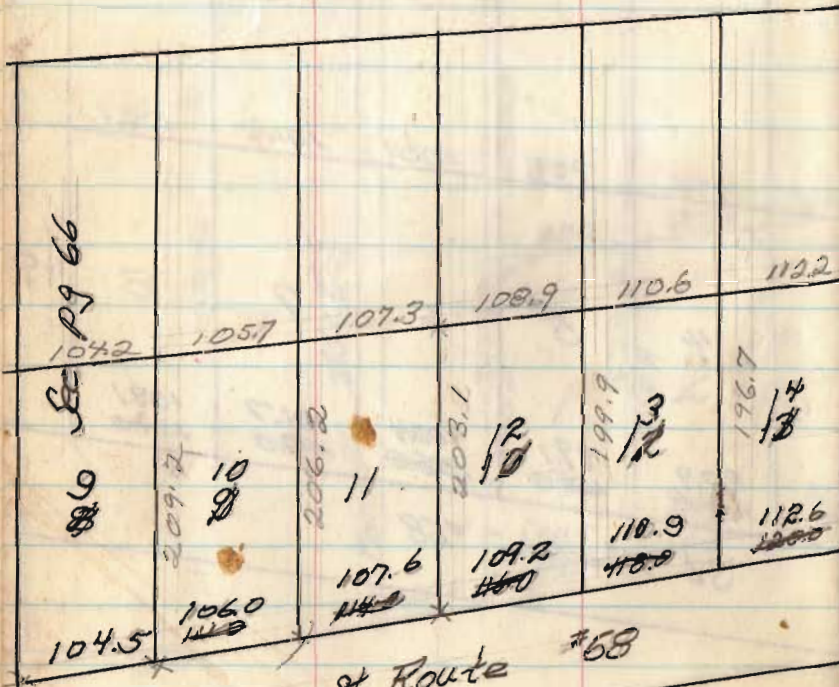 See pg 66
104.2
105.7
107.3
108.9
110.6
112.2
209.2
206.2
203.1
199.9
196.7
9
10
11
12
13
14
104.5
106.0
107.6
109.2
110.9
112.6
Route #58